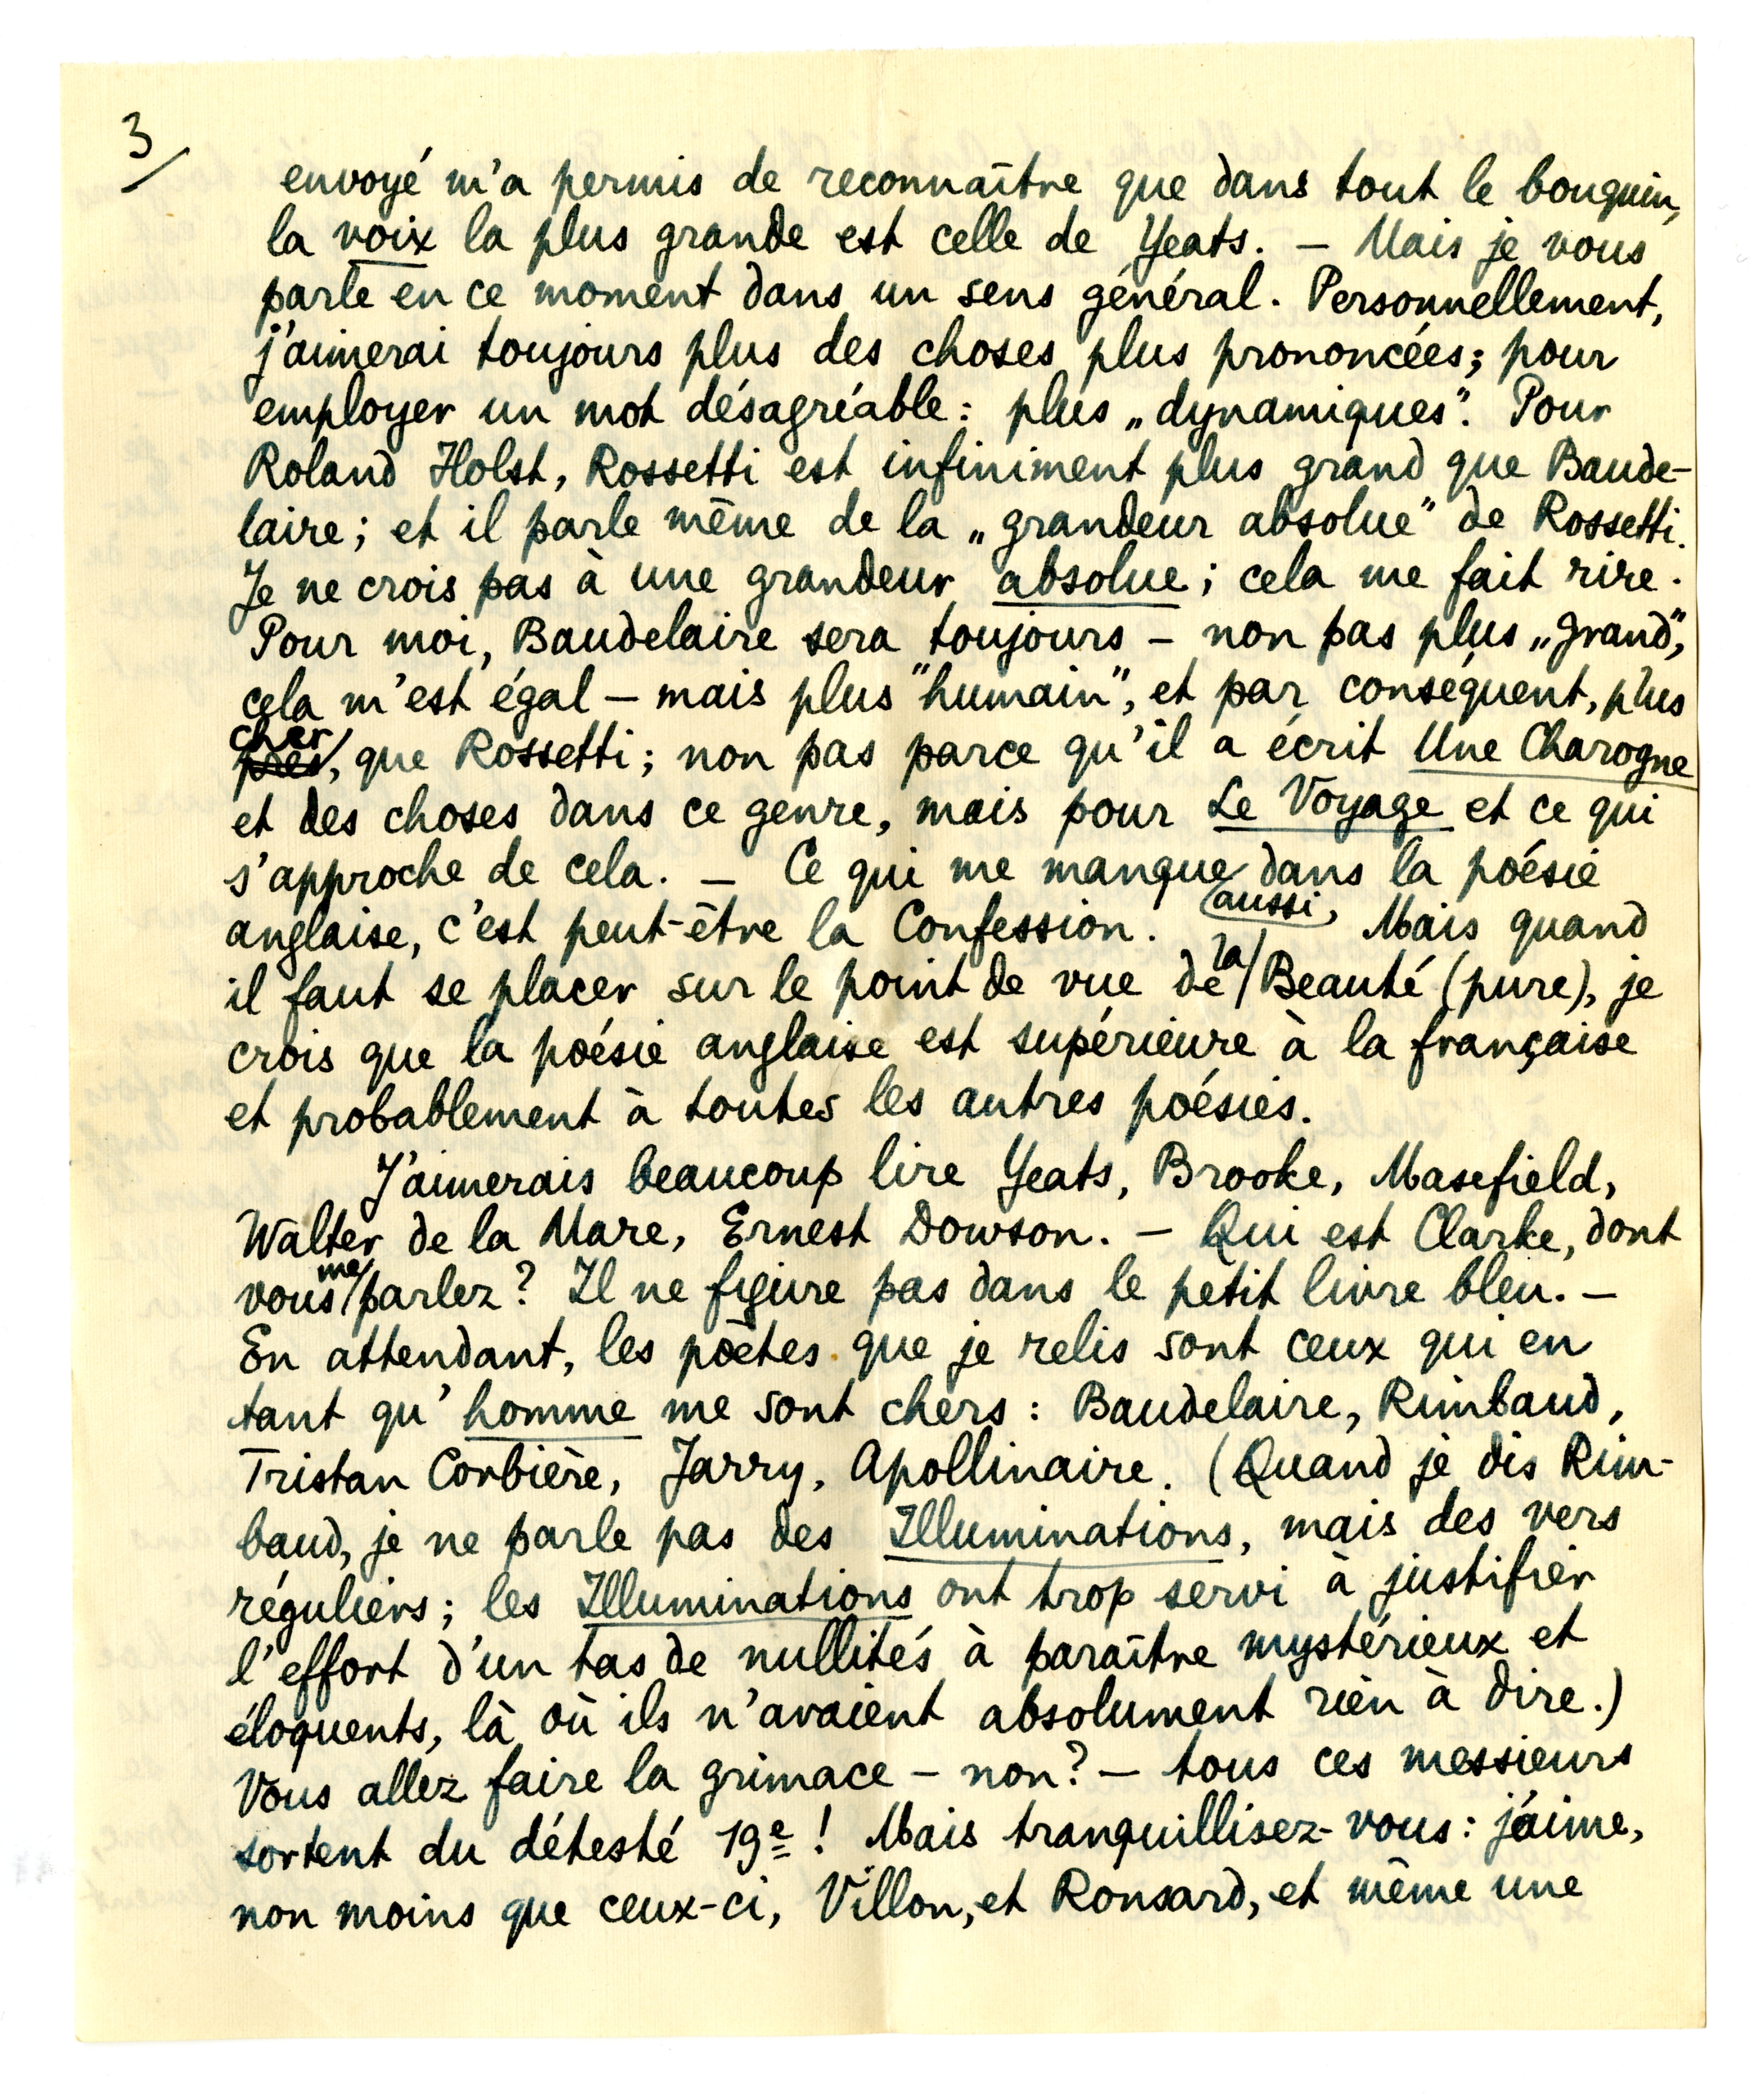 3/
envoyé m'a permis de reconnaître que dans tout le bouquin,
la voix la plus grande est celle de Yeats. — Mais je vous
parle en ce moment dans un sens général. Personnellement,
j'aimerai toujours plus des choses plus prononcées; pour
employer un mot désagréable: plus „dynamiques". Pour
Roland Holst, Rossetti est infiniment plus grand que Baude-
laire; et il parle même de la „grandeur absolue" de Rossetti.
Je ne crois pas à une grandeur absolue; cela me fait rire.
Pour moi, Baudelaire sera toujours – non pas plus „grand",
cela m'est égal – mais plus "humain", et par conséquent, plus
cher
près, que Rossetti; non pas parce qu'il a écrit Une Charogne
et des choses dans ce genre, mais pour Le Voyage et ce qui
s'approche de cela. — Ce qui me manque dans la poésie
anglaise, c'est peut-être la Confession. aussi, Mais quand
il faut se placer sur le point de vue de la Beauté (pure), je
crois que la poésie anglaise est supérieure à la française
et probablement à toutes les autres poésies.
J'aimerais beaucoup lire Yeats, Brooke, Masefield,
Walter de la Mare, Ernest Dowson. – Qui est Clarke, dont
vous me parlez? Il ne figure pas dans le petit livre bleu. –
En attendant, les poètes que je relis sont ceux qui en
tant qu'homme me sont chers: Baudelaire, Rimbaud,
Tristan Corbière, Jarry, Apollinaire. (Quand je dis Rim-
baud, je ne parle pas des Illuminations, mais des vers
réguliers; les Illuminations ont trop servi à justifier
l'effort d'un tas de nullités à paraître mystérieux et
éloquents, là où ils n'avaient absolument rien à dire.)
Vous allez faire la grimace – non? – tous ces messieurs
sortent du détesté 19e! Mais tranquillisez-vous: j'aime,
non moins que ceux-ci, Villon, et Ronsard, et même une